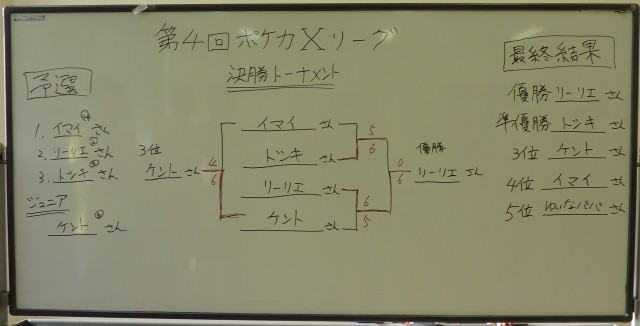 第4回ポケカXリーグ
決勝トーナメント
予選
1. イマイ さん
2. リーリエ さん
3. トシキ さん
ジュニア
ケント さん
3位
ケント さん
4
6
イマイ さん
トシキ さん
リーリエ さん
ケント さん
5
6
6
5
0
6
優勝
リーリエ さん
最終結果
優勝 リーリエ さん
準優勝 トシキ さん
3位 ケント さん
4位 イマイ さん
5位 さん